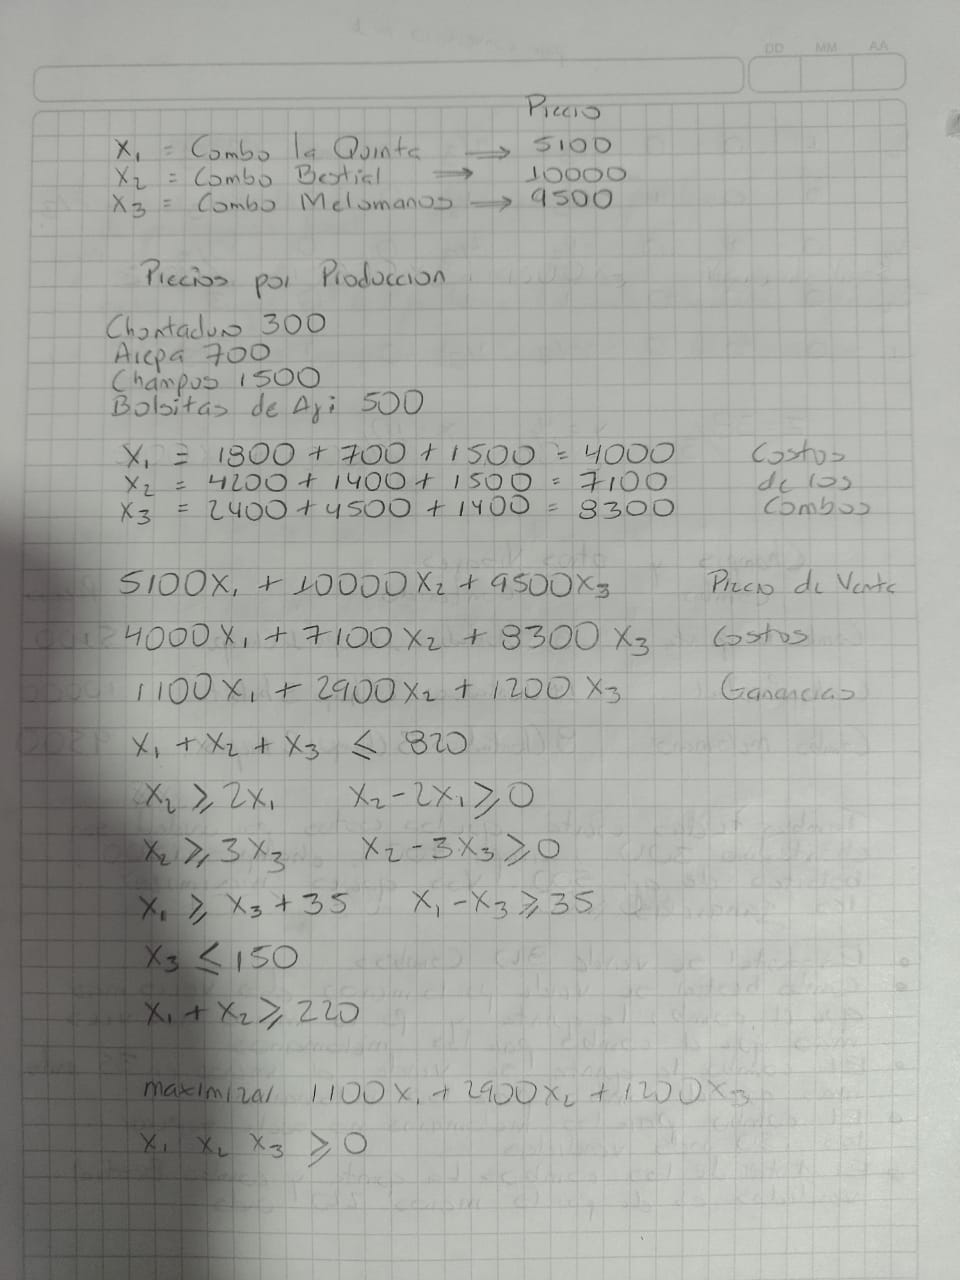 DD MM AA
Precio
X₁ = Combo la Quinta → 5100
X₂ = Combo Bestial → 10000
X₃ = Combo Melomanos → 9500
Precios por Produccion
Chontaduro 300
Arepa 700
Champus 1500
Bolsitas de Aji 500
X₁ = 1800 + 700 + 1500 = 4000 Costos
X₂ = 4200 + 1400 + 1500 = 7100 de los
X₃ = 2400 + 4500 + 1400 = 8300 Combos
5100X₁ + 10000X₂ + 9500X₃ Precio de Venta
4000X₁ + 7100X₂ + 8300X₃ Costos
1100X₁ + 2900X₂ + 1200X₃ Ganancias
X₁ + X₂ + X₃ ≤ 820
X₂ ≥ 2X₁ X₂ - 2X₁ ≥ 0
X₂ ≥ 3X₃ X₂ - 3X₃ ≥ 0
X₁ ≥ X₃ + 35 X₁ - X₃ ≥ 35
X₃ ≤ 150
X₁ + X₂ ≥ 220
maximizar 1100X₁ + 2900X₂ + 1200X₃
X₁ X₂ X₃ ≥ 0